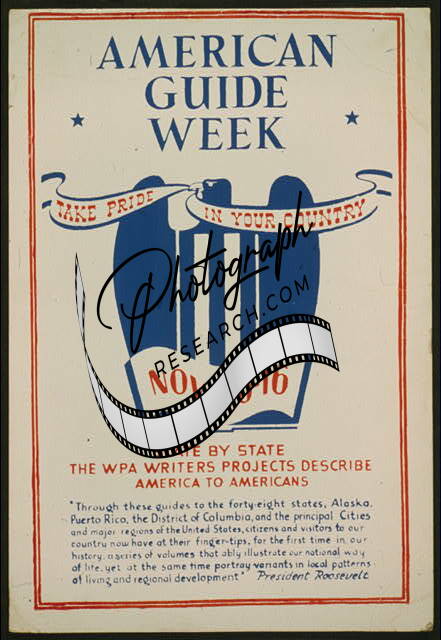 AMERICAN
GUIDE
WEEK
TAKE PRIDE
IN YOUR COUNTRY
Photograph
RESEARCH.COM
NOV 16
BY STATE
THE WPA WRITERS PROJECTS DESCRIBE
AMERICA TO AMERICANS
"Through these guides to the forty-eight states, Alaska,
Puerto Rico, the District of Columbia, and the principal Cities
and major regions of the United States, citizens and visitors to our
country now have at their finger-tips, for the first time in our
history, a series of volumes that ably illustrate our national way
of life, yet at the same time portray variants in local patterns
of living and regional development" President Roosevelt